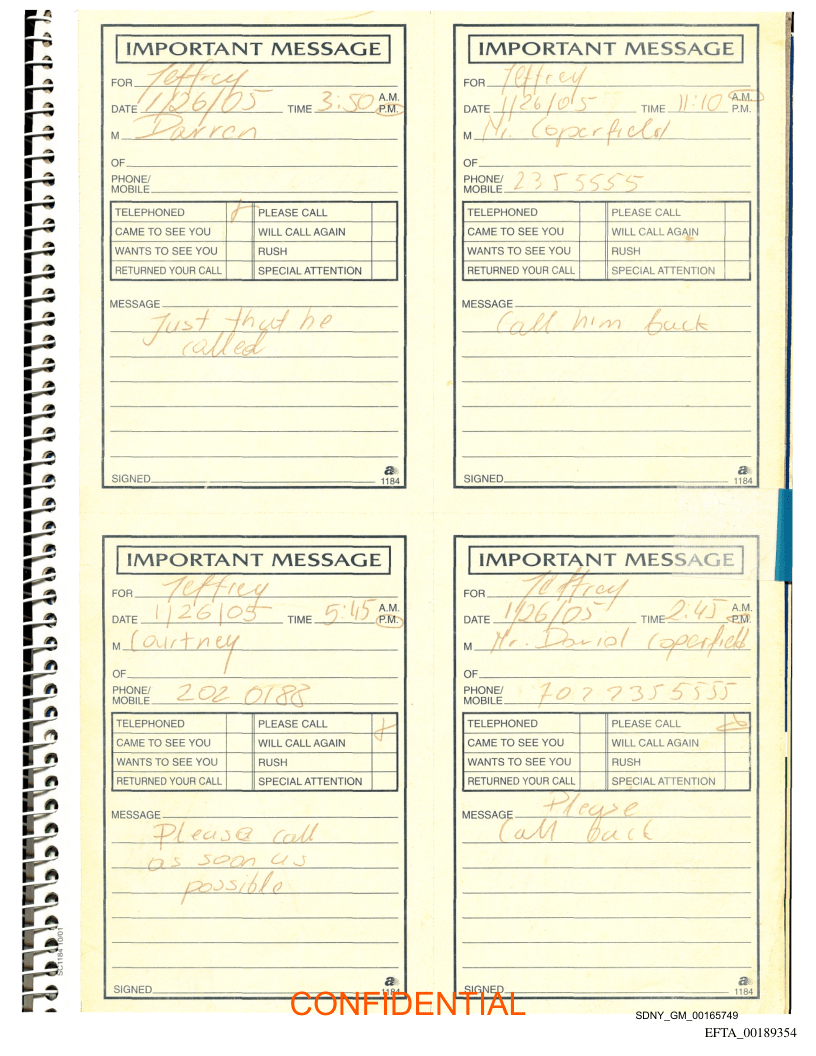 IMPORTANT MESSAGE
FOR Jeffrey
DATE 1/26/05 TIME 3:50 A.M. P.M.
M Darren
OF
PHONE/
MOBILE
TELEPHONED PLEASE CALL
CAME TO SEE YOU WILL CALL AGAIN
WANTS TO SEE YOU RUSH
RETURNED YOUR CALL SPECIAL ATTENTION
MESSAGE
Just that he
called
SIGNED
a
1184
IMPORTANT MESSAGE
FOR Jeffrey
DATE 1/26/05 TIME 11:10 A.M. P.M.
M Mr. Coperfield
OF
PHONE/
MOBILE 2355555
TELEPHONED PLEASE CALL
CAME TO SEE YOU WILL CALL AGAIN
WANTS TO SEE YOU RUSH
RETURNED YOUR CALL SPECIAL ATTENTION
MESSAGE
Call him back
SIGNED
a
1184
IMPORTANT MESSAGE
FOR Jeffrey
DATE 1/26/05 TIME 5:45 A.M. P.M.
M Courtney
OF
PHONE/
MOBILE 202 0188
TELEPHONED PLEASE CALL
CAME TO SEE YOU WILL CALL AGAIN
WANTS TO SEE YOU RUSH
RETURNED YOUR CALL SPECIAL ATTENTION
MESSAGE
Please call
as soon as
possible
SIGNED
a
1184
IMPORTANT MESSAGE
FOR Jeffrey
DATE 1/26/05 TIME 2:45 A.M. P.M.
M Mr. David Coperfield
OF
PHONE/
MOBILE 702 2355555
TELEPHONED PLEASE CALL
CAME TO SEE YOU WILL CALL AGAIN
WANTS TO SEE YOU RUSH
RETURNED YOUR CALL SPECIAL ATTENTION
MESSAGE Please
Call back
SIGNED
a
1184
SC1184 10/01
CONFIDENTIAL
SDNY_GM_00165749
EFTA_00189354